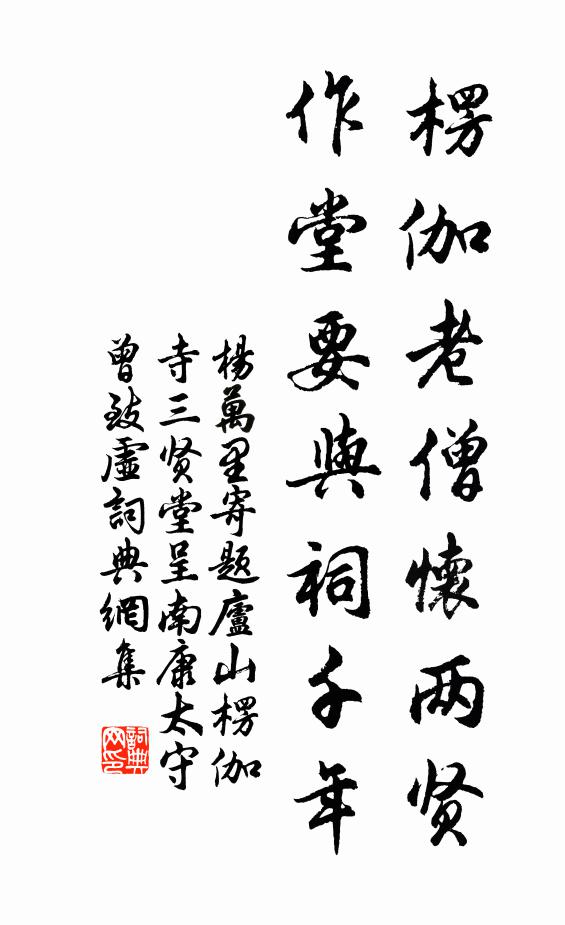 楞伽老僧懷两贤
作堂要與祠千年
楊萬里寄题廬山楞伽
寺三贤堂呈南康太守
曾致虛詞典網集
詞典网印